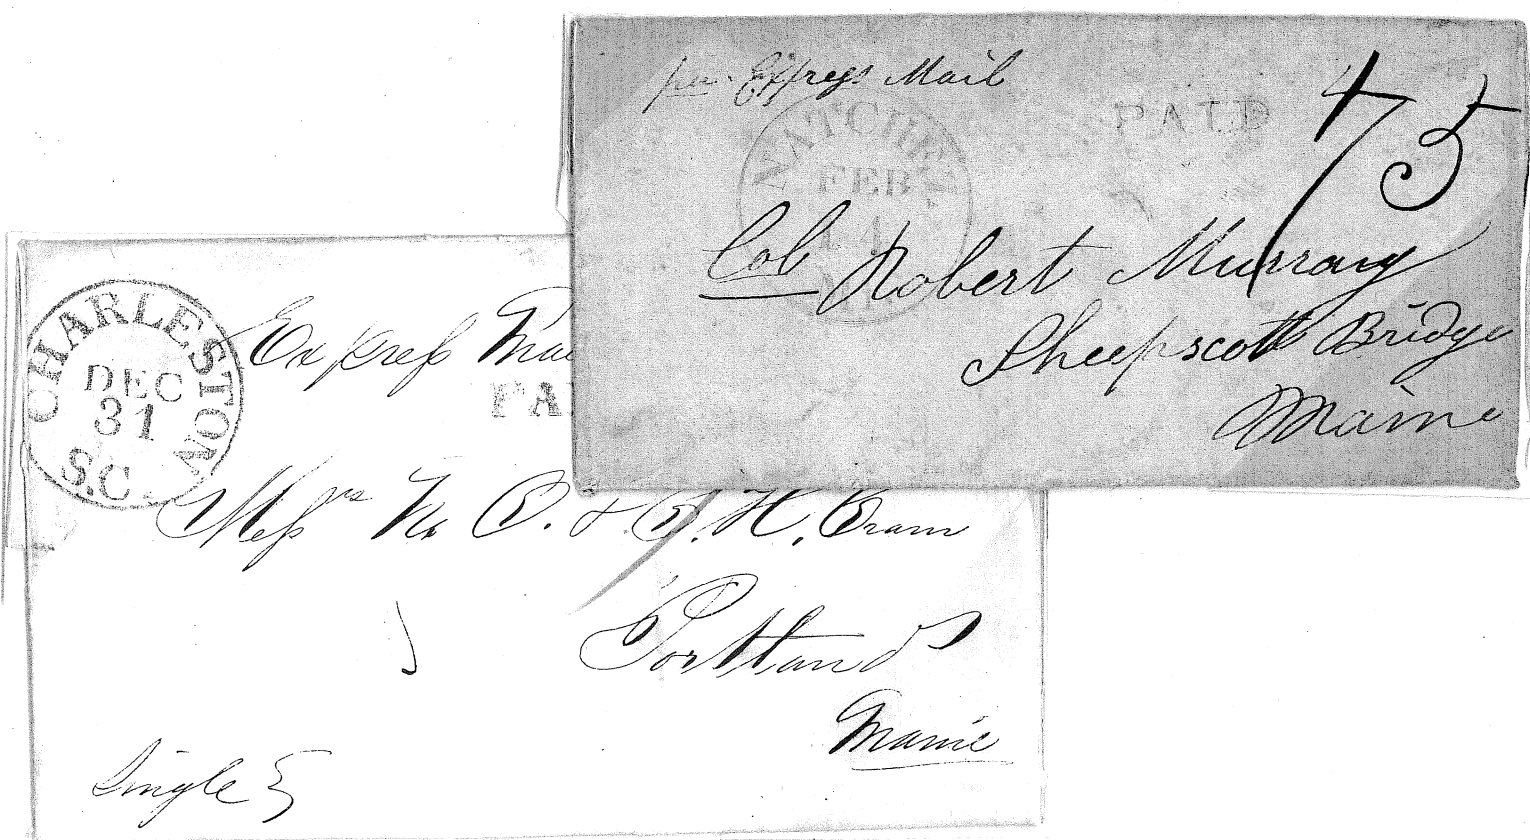 per Express Mail
PAID
75
NATCHEZ
FEB
14
Col Robert Murray
Sheepscott Bridge
Maine
CHARLESTON
DEC
31
S.C.
Express Mai
PA
Messrs N. O. & G. H. Cram
Portland
Maine
Single